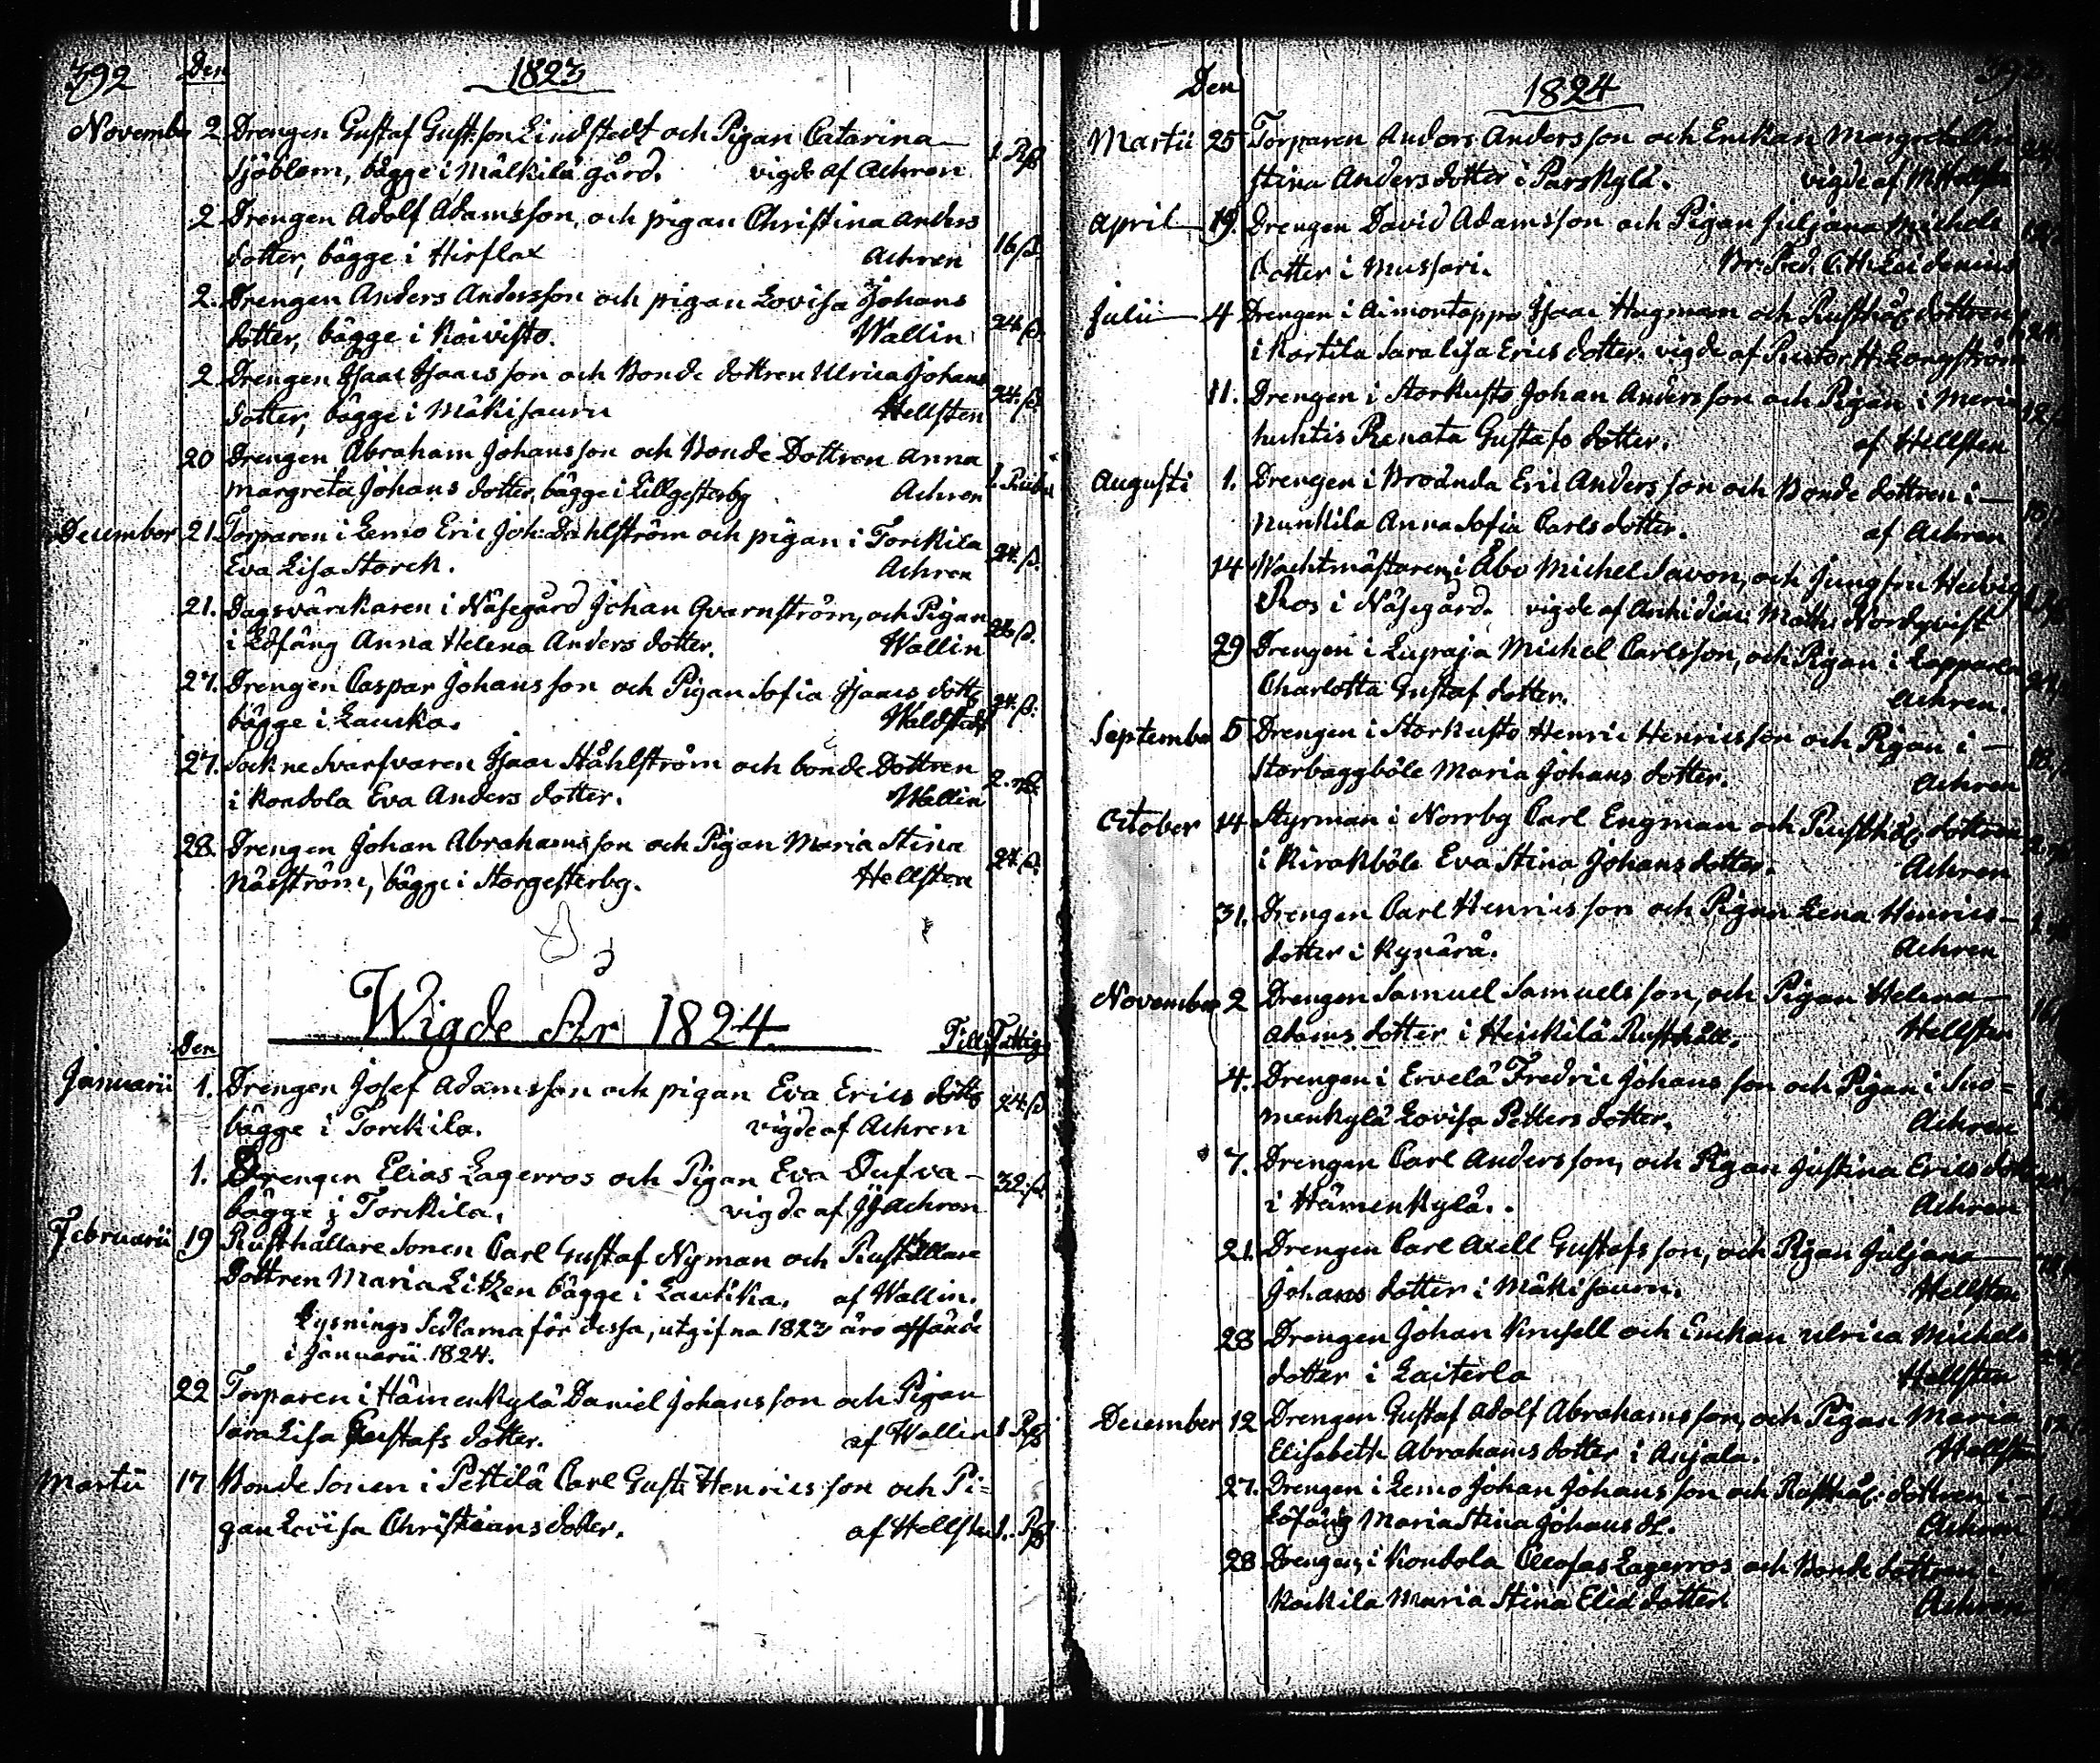 392 Den 1823
November 2 Drengen Gustaf Gust:son Lindstedt och Pigan Catarina
Sjöblom, bägge i Mälkilä gård. vigde af Achren 1 Rß
2 Drengen Adolf Adamsson, och pigan Christina Anders
dotter, bägge i Hirflax Achren 16 ß.
2. Drengen Anders Andersson och pigan Lovisa Johans
dotter, bägge i Koivisto. Wallin 24 ß.
2 Drengen Isaac Isaacsson och Bonde dottren Ulrica Johans
dotter, bägge i Mäkisauru Hellsten 24. ß.
20 Drengen Abraham Johansson och Bonde Dottren Anna
Margreta Johans dotter, bägge i Lillgesterby Achren 1 Rubel
December 21. Torparen i Lemo Eric Joh: Dahlström och pigan i Torckila
Eva Lisa Storck. Achren 24. ß.
21. Dagsvärckaren i Näsegård Johan Qvarnström, och Pigan
i Edfäng Anna Helena Anders dotter. Wallin 24 ß.
27. Drengen Caspar Johansson och Pigan Sofia Isaacs dottr
bägge i Laucka. Waldstedt 24. ß.
27. Sockne Svarfvaren Isaac Ståhlström och bonde Dottren
i Kondola Eva Anders dotter. Wallin 2. rß.
28. Drengen Johan Abrahamsson och Pigan Maria Stina
Näsström, bägge i Storgesterby. Hellsten 24. ß.
Wigde År 1824
Den Till Fattig:
Januarii 1. Drengen Josef Adamsson och pigan Eva Erics dottr
bägge i Torckila. vigde af Achren 24. ß
1. Drengen Elias Lagerros och Pigan Eva Dufva
bägge i Torckila, vigde af JJ Achren 32. ß
Februarii 19 Rusthållare Sonen Carl Gustaf Nyman och Rusthållare
Dottren Maria Litzen bägge i Lautkia. af Wallin.
Lysnings Sedlarna för dessa, utgifna 1823 äro afsände
i Januarii 1824.
22 Torparen i Hämenkylä Daniel Johansson och Pigan
Sara Lisa Gustafs dotter. af Wallin 1 Rß
Martii 17 Bonde Sonen i Pettilä Carl Gust: Henricsson och Pi=
gan Lovisa Christians dotter. af Hellsten 1. Rß
Den 1824
Martii 25 Torparen Anders Andersson och Enckan Margreta
Stina Anders dotter i Parskylä. vigde af
April 19. Drengen David Adamsson och Pigan Juljana Michels
dotter i Mussari. C.H. Leidenius
Julii 4 Drengen i Aimontappo Isaac Hugmam och Rusthål: dottren
i Kartila Sara Lisa Erics dotter. vigde af Pastor H. Longström
11. Drengen i Storkusto Johan Andersson och Pigan i Meri
huhtis Renata Gustafs dotter. af Hellsten
Augusti 1. Drengen i Brodnda Eric Andersson och Bonde dottren i
Nunkila Anna Sofia Carls dotter. af Achren
14 Wachtmästaren i Åbo Michel Savon, och Jungfru Hedvig
Ros i Näsegård. vigde af Archidiac: Math: Nordqvist
29 Drengen i Lupaja Michel Carlsson, och Pigan i
Charlotta Gustaf dotter. Achren.
September 5 Drengen i Storkusto Henric Henricsson och Pigan i
Storbaggböle Maria Johans dotter. Achren
October 14 Styrman i Norrby Carl Engman och Rusthål: dottren
i Kirakböle Eva Stina Johans dotter. Achren
31. Drengen Carl Henricsson och Pigan Lena Henrics
dotter i Kynärä. Achren
November 2 Drengen Samuel Samuelsson, och Pigan Helena
Adams dotter i Heickilä Rusthåll. Hellsten
4. Drengen i Ervelä Fredric Johansson och Pigan i Suo=
menkylä Lovisa Petters dotter. Achren
7. Drengen Carl Andersson, och Pigan Justina Erics dottr
i Hämenkylä. Achren
21. Drengen Carl Axell Gustafsson, och Pigan Juljana
Johans dotter i Mäkisauru. Hellsten
28 Drengen Johan Krusell och Enckan Ulrica Michels
dotter i Laiterla Hellsten
December 12 Drengen Gustaf Adolf Abrahamsson, och Pigan Maria
Elisabeth Abrahams dotter i Anjala. Hellsten
27. Drengen i Lemo Johan Johansson och Rusthål: dottren i
Löfäng Maria Stina Johans dr. Achren
28 Drengen i Kondola Cleofas Lagerros och Bonde dottren i
Kockila Maria Stina Elid dotter Achren